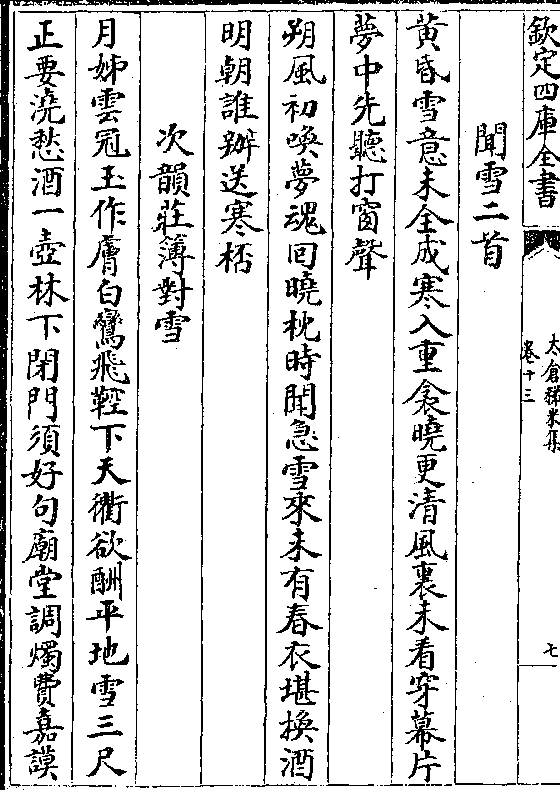 欽定四庫全書
太倉稊米集
卷十三
七
聞雪二首
黃昏雪意未全成寒入重衾曉更清風裏未看穿幕片
夢中先聽打窗聲
朔風初喚夢魂回曉枕時聞急雪來未有春衣堪換酒
明朝誰辦送寒桮
次韻莊簿對雪
月姊雲冠玉作膚白鸞飛鞚下天衢欲酬平地雪三尺
正要澆愁酒一壺林下閉門須好句廟堂調燭費嘉謨